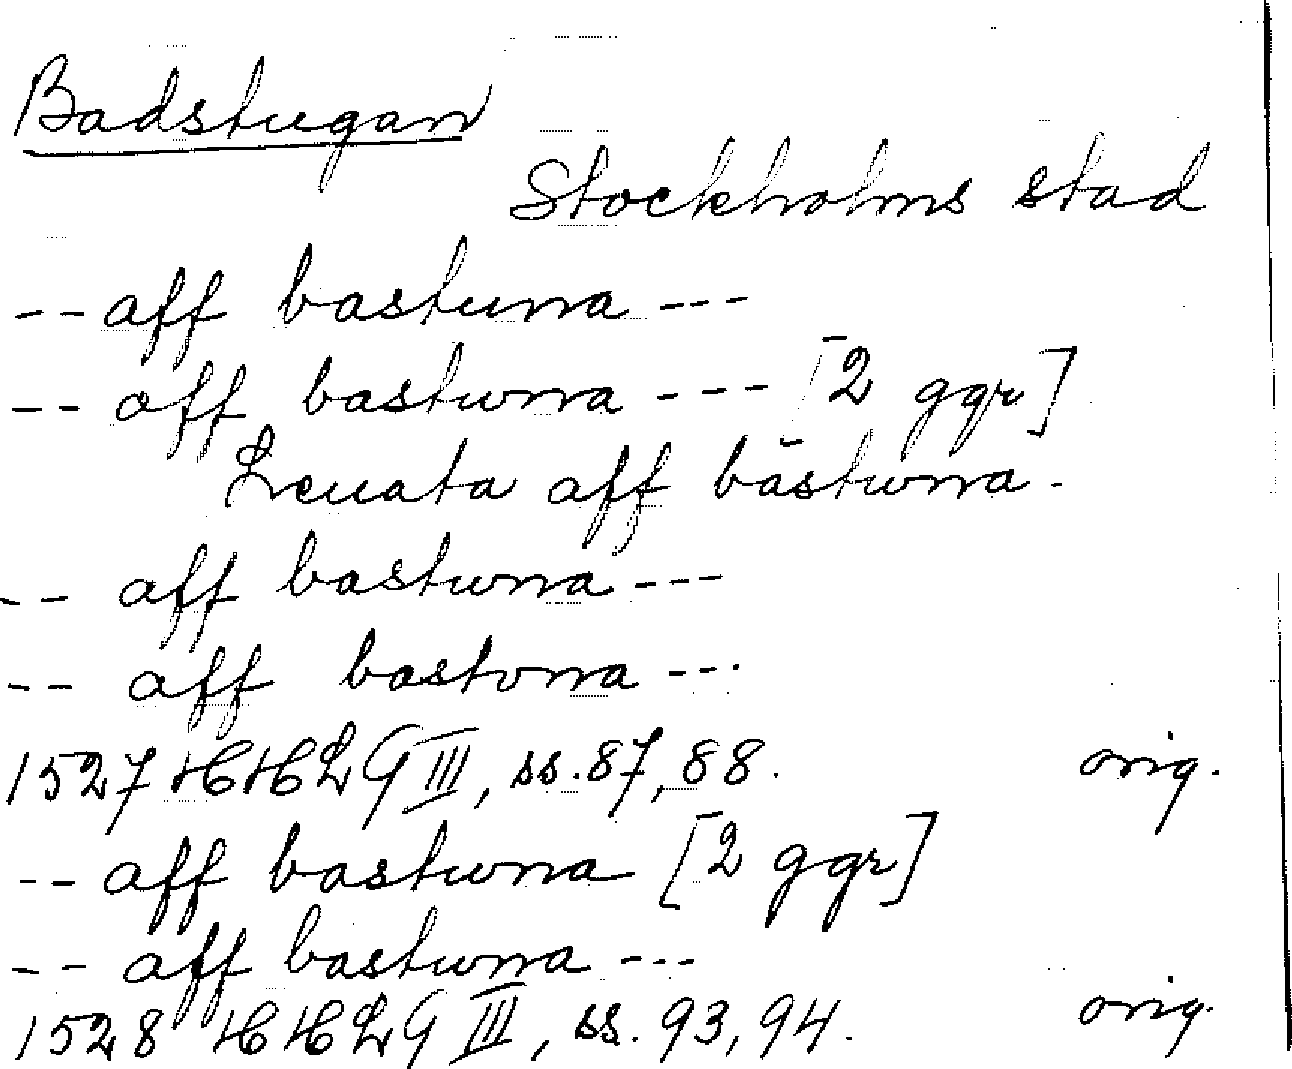 Badstugan
Stockholms stad
-- aff bastuna ---
-- aff bastwna --- [2 ggr]
Leuata aff bastwna -
-- aff bastwna ---
-- aff bastvna ---
1527 HHLG III, ss. 87, 88. orig.
-- aff bastwna [2 ggr]
-- aff bastwna ---
1528 HHLG III, ss. 93, 94. orig.